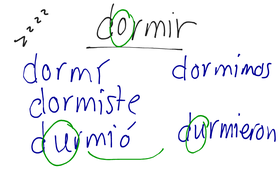 zzzz
dormir
dormí dormimos
dormiste
durmió durmieron